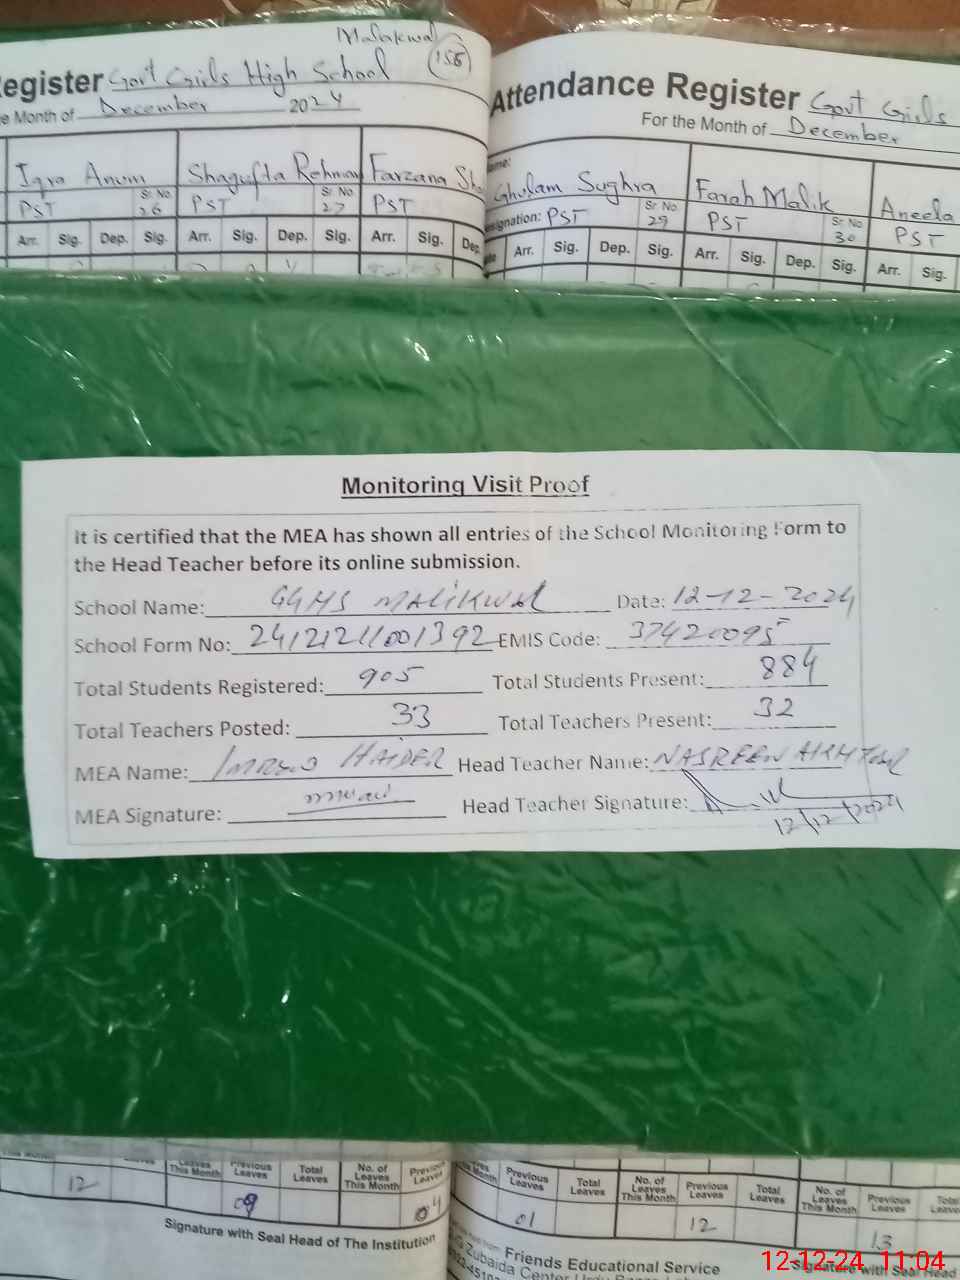 Malakwal
156
Register Govt Girls High School
e Month of December 2024
Iqra Anum Shagufta Rehman Farzana
PST Sr. No 26 PST Sr. No 27 PST
Arr. Sig. Dep. Sig. Arr. Sig. Dep. Sig. Arr. Sig. Dep.
Attendance Register Govt Girls
For the Month of December
Name: Ghulam Sughra Farah Malik Aneela
Designation: PST Sr No 29 PST Sr. No 30 PST
Arr. Sig. Dep. Sig. Arr. Sig. Dep. Sig. Arr. Sig.
Monitoring Visit Proof
It is certified that the MEA has shown all entries of the School Monitoring Form to
the Head Teacher before its online submission.
School Name: GGHS MALIKWAL Date: 12-12-2024
School Form No: 24121211001392 EMIS Code: 37420095
Total Students Registered: 905 Total Students Present: 884
Total Teachers Posted: 33 Total Teachers Present: 32
MEA Name: HAIDER Head Teacher Name: NASREEN AKHTAR
MEA Signature: Head Teacher Signature:
12/12/2024
Leaves This Month Previous Leaves Total Leaves No. of Leaves This Month Previous Leaves
12 09 04
Signature with Seal Head of The Institution
Previous Leaves Total Leaves No. of Leaves This Month Previous Leaves Total Leaves No. of Leaves This Month Previous Leaves
01 12 13
Friends Educational Service
Signature with Seal Head
Zubaida Center Urdu
12-12-24 11:04